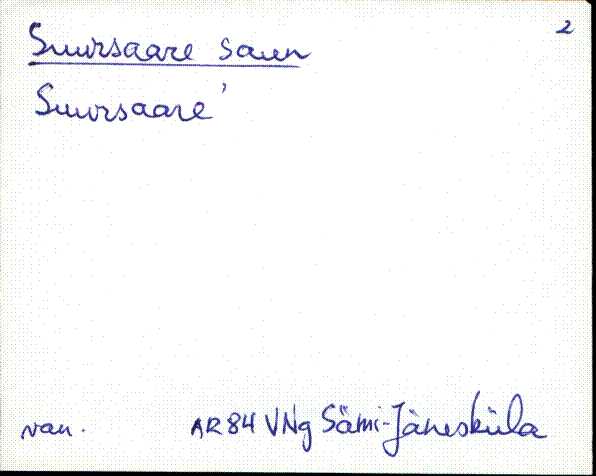 2
Suursaare saun
Suursaare'
van. AR84 VNg Sämi-Jänesküla